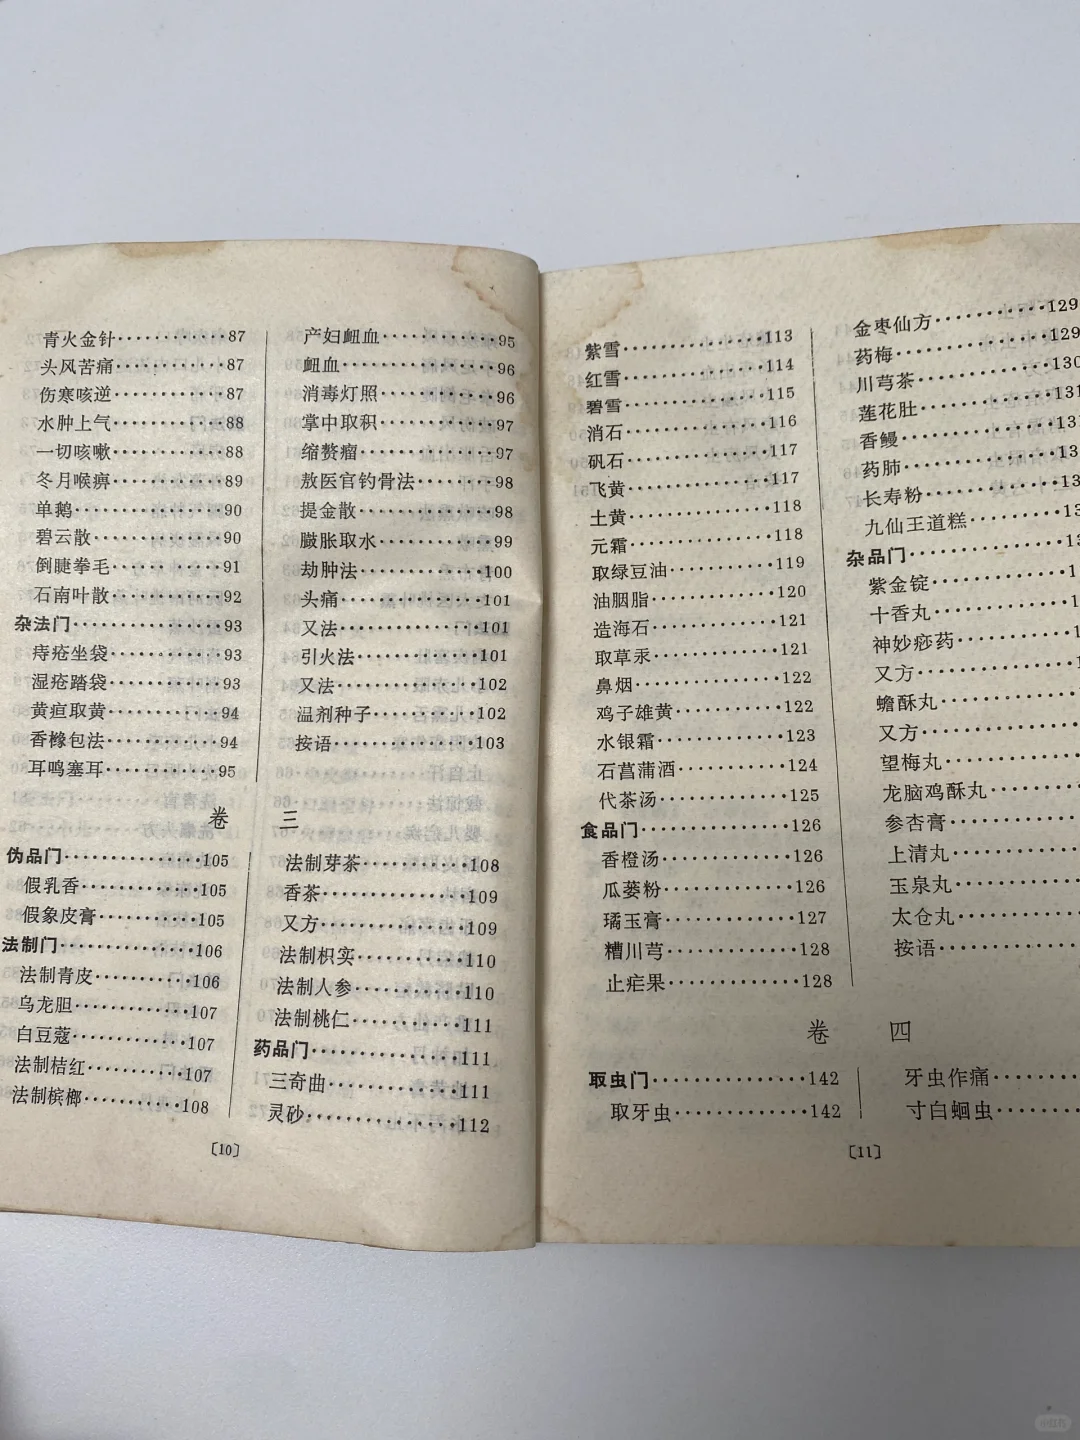 青火金针············87
头风苦痛············87
伤寒咳逆············87
水肿上气············88
一切咳嗽············88
冬月喉痹············89
单鹅············90
碧云散············90
倒睫拳毛············91
石南叶散············92
杂法门············93
痔疮坐袋············93
湿疮踏袋············93
黄疸取黄············94
香橼包法············94
耳鸣塞耳············95
产妇衄血············95
衄血············96
消毒灯照············96
掌中取积············97
缩赘瘤············97
敖医官钓骨法············98
提金散············98
臌胀取水············99
劫肿法············100
头痛············101
又法············101
引火法············101
又法············102
温剂种子············102
按语············103
卷 三
伪品门············105
假乳香············105
假象皮膏············105
法制门············106
法制青皮············106
乌龙胆············107
白豆蔻············107
法制桔红············107
法制槟榔············108
法制芽茶············108
香茶············109
又方············109
法制枳实············110
法制人参············110
法制桃仁············111
药品门············111
三奇曲············111
灵砂············112
〔10〕
紫雪············113
红雪············114
碧雪············115
消石············116
矾石············117
飞黄············117
土黄············118
元霜············118
取绿豆油············119
油胭脂············120
造海石············121
取草汞············121
鼻烟············122
鸡子雄黄············122
水银霜············123
石菖蒲酒············124
代茶汤············125
食品门············126
香橙汤············126
瓜蒌粉············126
璚玉膏············127
糟川芎············128
止疟果············128
金枣仙方············129
药梅············129
川芎茶············130
莲花肚············131
香鳗············13
药肺············13
长寿粉············13
九仙王道糕············13
杂品门············13
紫金锭············1
十香丸············1
神妙痧药············1
又方············1
蟾酥丸············
又方············
望梅丸············
龙脑鸡酥丸············
参杏膏············
上清丸············
玉泉丸············
太仓丸············
按语············
卷 四
取虫门············142
取牙虫············142
牙虫作痛············
寸白蛔虫············
〔11〕